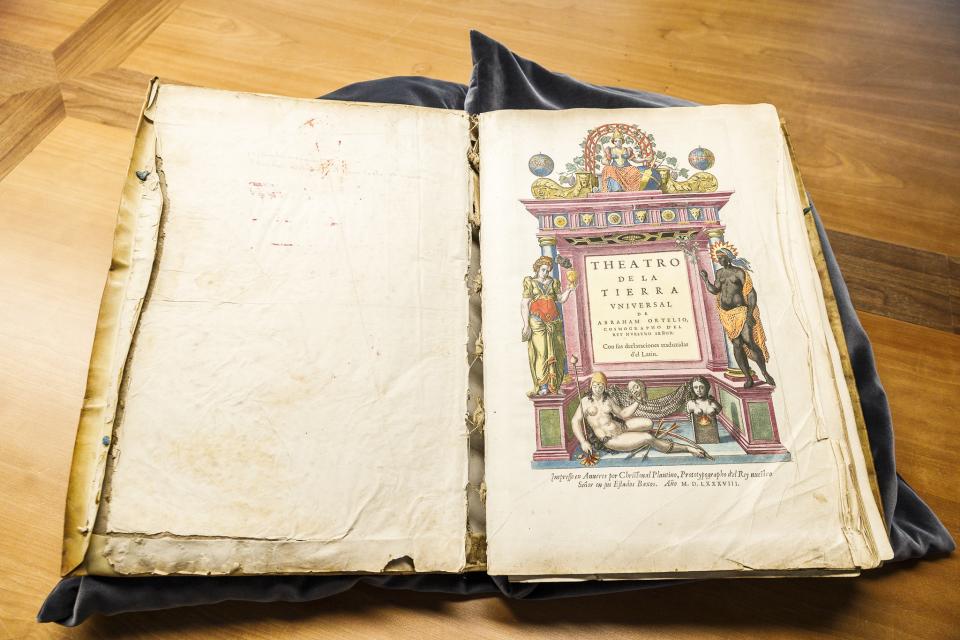 THEATRO
DE LA
TIERRA
VNIVERSAL
DE
ABRAHAM ORTELIO,
COSMOGRAPHO DEL
REY NVESTRO SEÑOR.
Con sus declaraciones traduzidas
d'el Latin.
Impresso en Anveres por Christoual Plantino, Prototypographo del Rey nuestro
Señor en sus Estados Baxos. Año M. D. LXXXVIII.